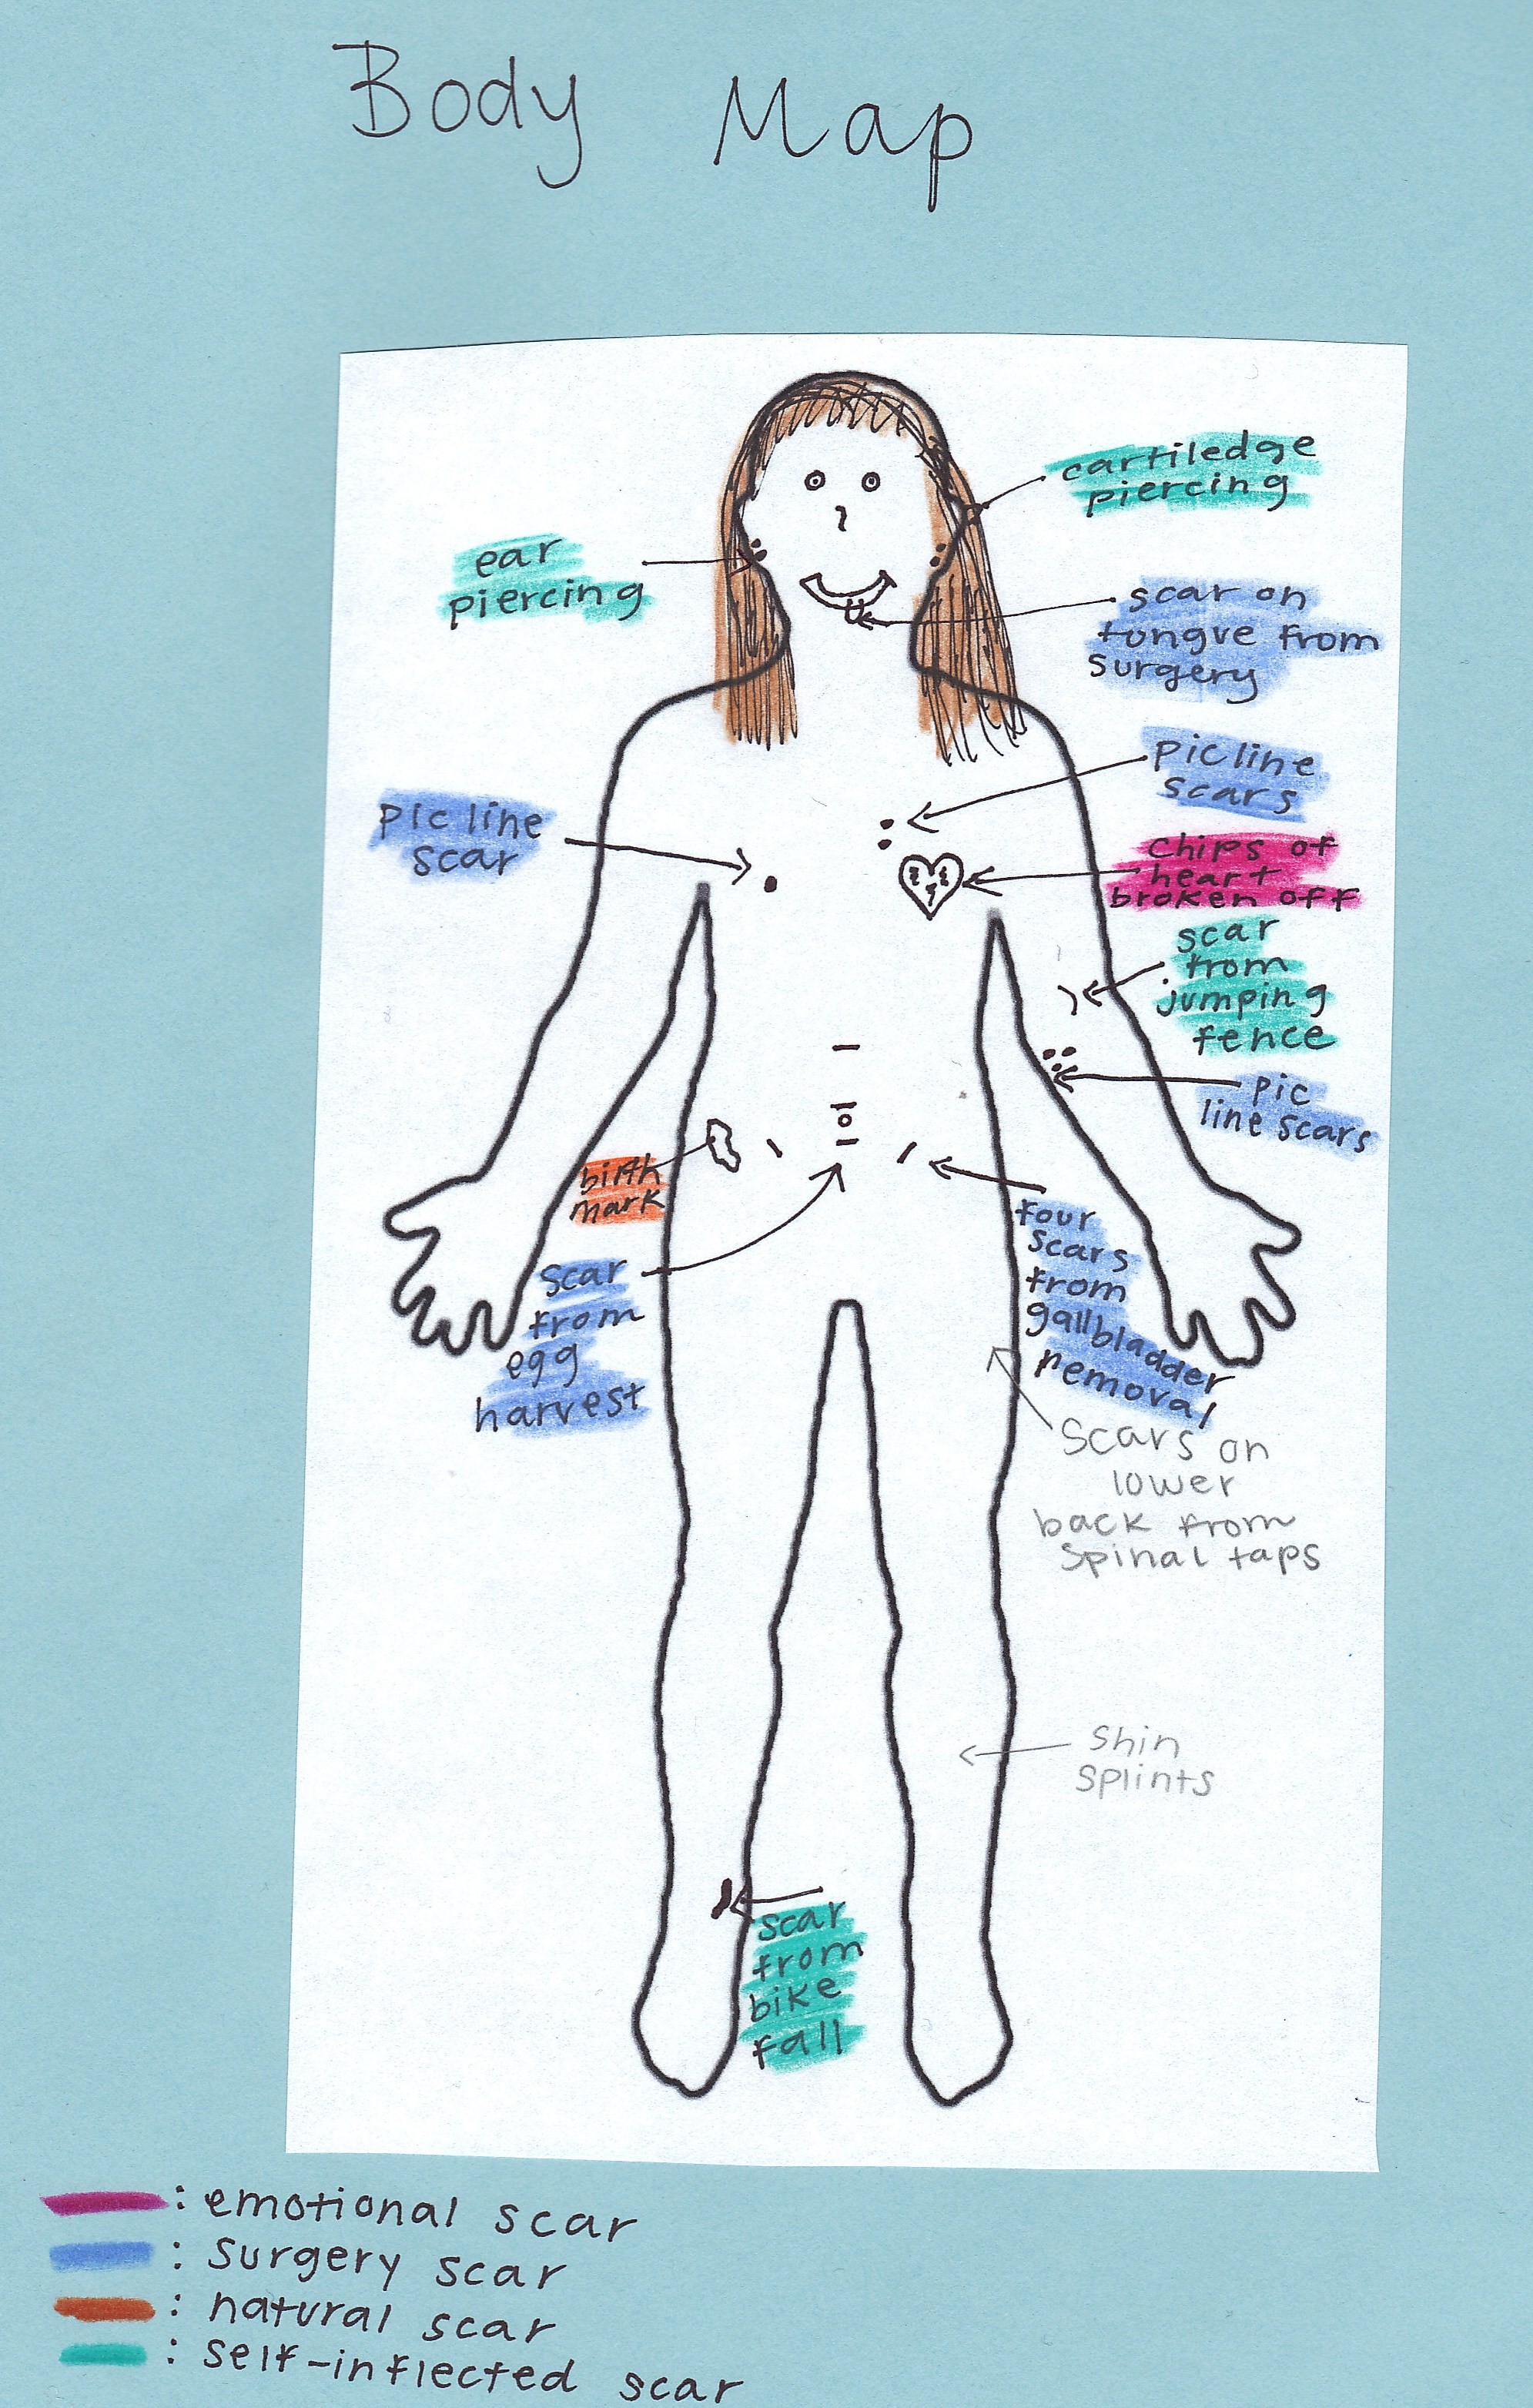 Body Map
cartiledge
piercing
ear
piercing
scar on
tongue from
surgery
pic line
scars
pic line
scar
chips of
heart
broken off
scar
from
jumping
fence
pic
line scars
birth
mark
four
scars
from
gallbladder
removal
scar
from
egg
harvest
scars on
lower
back from
spinal taps
shin
splints
scar
from
bike
fall
: emotional scar
: surgery scar
: natural scar
: self-inflected scar